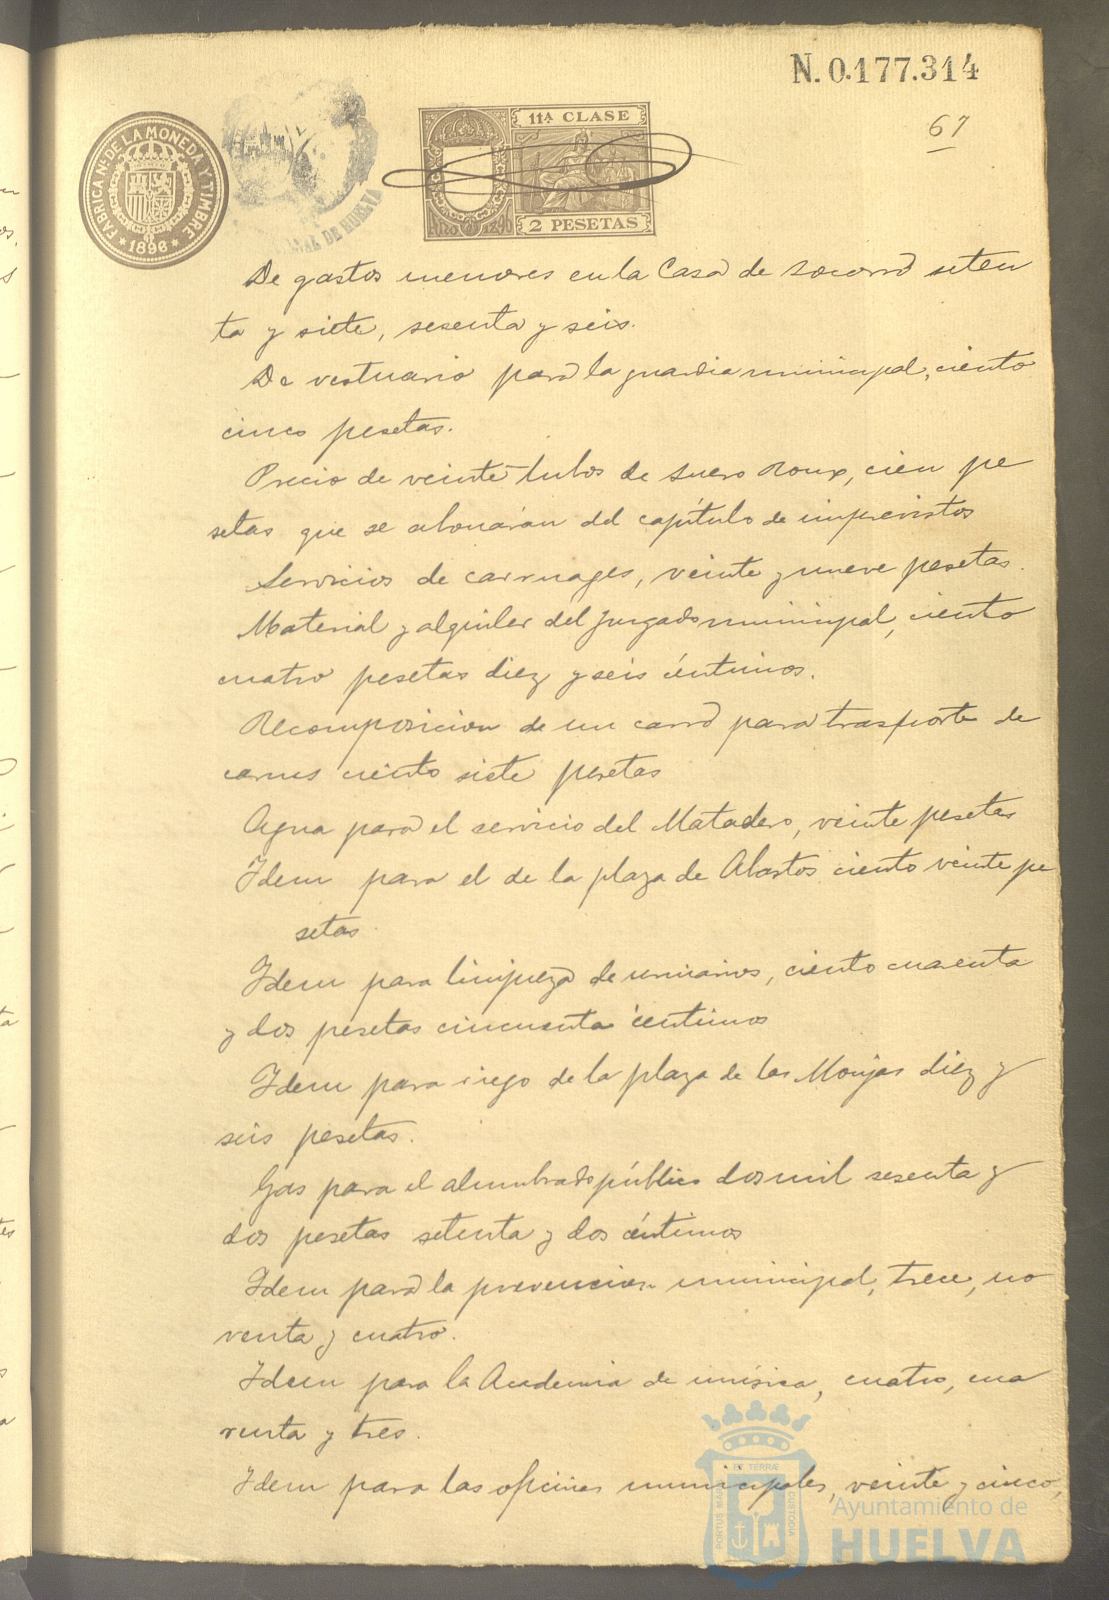 N. 0.177.314
67
FABRICA Nal DE LA MONEDA Y TIMBRE
* 1896 *
DE HUELVA
11ª CLASE
2 PESETAS
De gastos menores en la Casa de Socorro seten
ta y siete, sesenta y seis.
De vestuario para la guardia municipal, ciento
cinco pesetas.
Precio de veinte tubos de suero Roux, cien pe
setas que se abonarán del capítulo de imprevistos
Servicios de carruages, veinte y nueve pesetas.
Material y alquiler del Juzgado municipal, ciento
cuatro pesetas diez y seis céntimos.
Recomposicion de un carro para trasporte de
carnes ciento siete pesetas
Agua para el servicio del Matadero, veinte pesetas
Idem para el de la plaza de Abastos ciento veinte pe
setas
Idem para limpieza de urinarios, ciento cuarenta
y dos pesetas cincuenta céntimos
Idem para riego de la plaza de las Monjas diez y
seis pesetas.
Gas para el alumbrado público dos mil sesenta y
dos pesetas setenta y dos céntimos
Idem para la prevencion municipal, trece, no
venta y cuatro.
Idem para la Academia de música, cuatro, cua
renta y tres.
Idem para las oficinas municipales, veinte y cinco,
PORTUS MARIS ET TERRÆ CUSTODIA
Ayuntamiento de
HUELVA